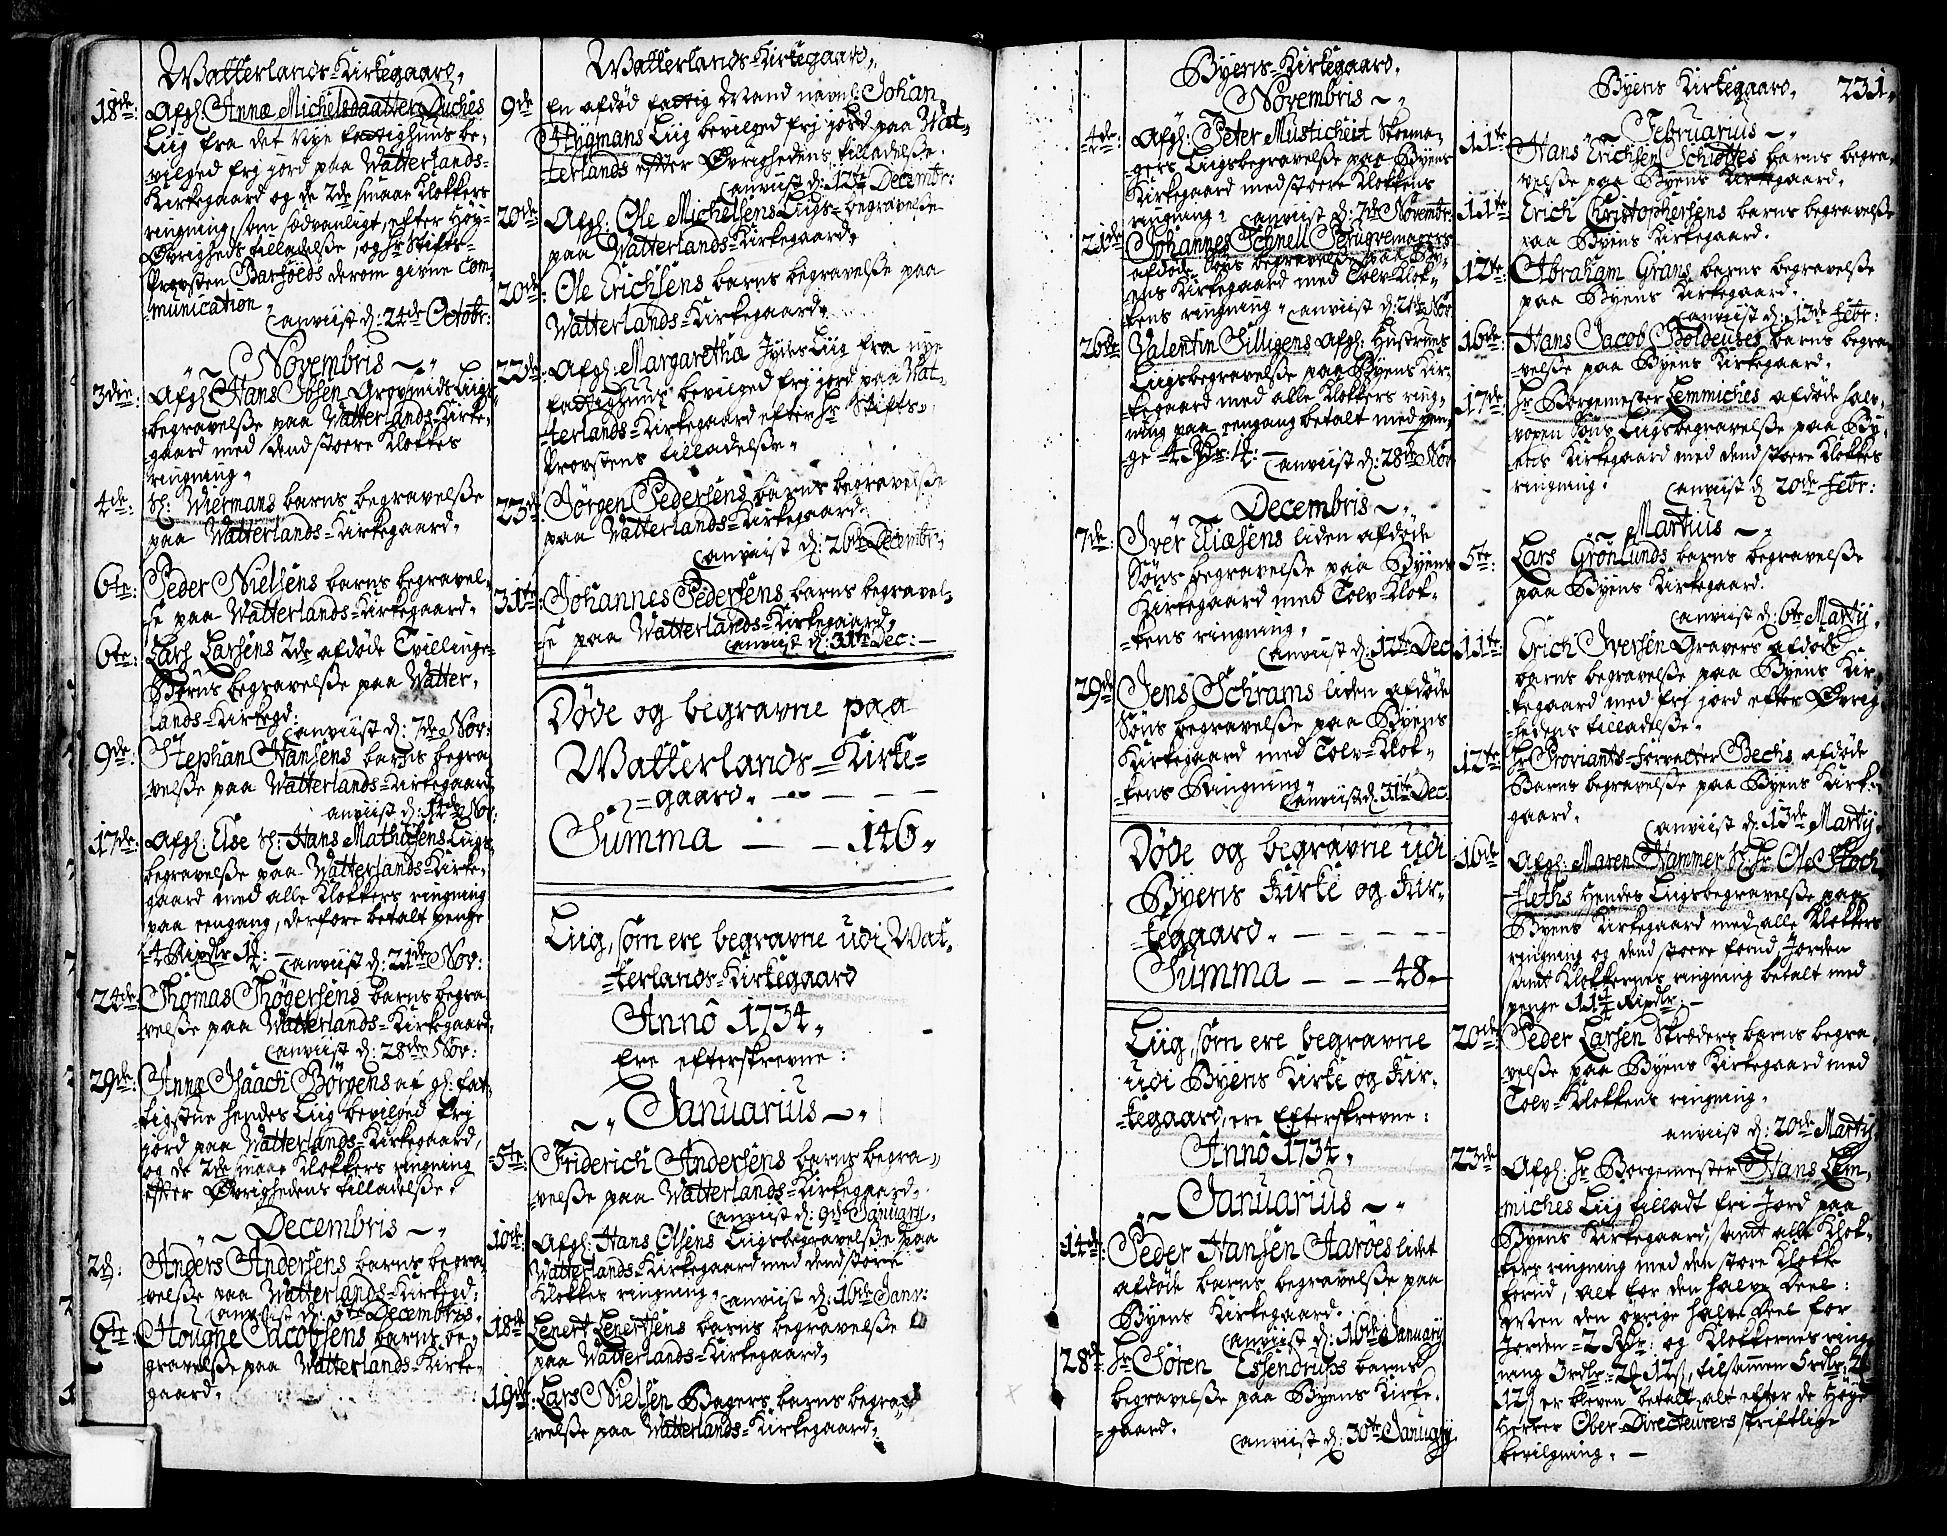 Watterlands-Kirkegaard.
18de: Afgl: Annæ Michelsdaatter Duches
Liig fra det Nye Fattighuus be-
vilged frj jord paa Watterlands-
Kirkegaard og de 2de smaae Klokkers
ringning, som sædvanligt, efter Høy-
Øvrigheds tilladelse, og hr Stifts-
Provsten Barhoeds derom givne Com-
munication
anviist d: 24de Octobr:
Novembris
3die Afgl: Hans Ibsen Grovsmids Liigs
begravelsse paa Watterlands-Kirke-
gaard med dend stoere Klokkes
ringning.
4de: Sl: Wiermans barns begravelsse
paa Watterlands-Kirkegaard.
6te: Peder Nielsens barns begravel-
se paa Watterlands-Kirkegaard.
6te: Lars Larsens 2de afdøde Tvillinge-
Børns begravelsse paa Watter-
lands-Kirkegd:
anviist d: 7de Nov:
9de: Stephan Hansens barns begra-
velsse paa Watterlands-Kirkegaard
anviist d: 14de Nov:
17de: Afgl: Else Sl: Hans Mathiæsens Liigs
begravelsse paa Watterlands-Kirke-
gaard med alle Klokkers ringning
paa eengang, derfore betalt penge
4 Rixdlr
anviist d: 21de Nov:
24de Thomas Thøgersens barns begra-
velsse paa Watterlands-Kirkegaard
anviist d: 28de Nov:
29de: Annæ Isaach Børgens af gl: fat-
tigstue hendes Liig bevilged frj
jord paa Watterlands-Kirkegaard,
og de 2de smaae Klokkers ringning
efter Øvrighedens tilladelse.
Decembris
2d: Anders Andersens barns begra-
velsse paa Watterlands-Kirkegd:
anviist d: 5te Decembris.
6te Hougne Jacobsens barns be-
gravelsse paa Watterlands-Kirke-
gaard.
Watterlands-Kirkegaard.
9de En afdød fattig Mand navnl: Johan
Hygmans Liig bevilged frj jord paa Wat-
terlands efter Øvrighedens tilladelse.
anviist d: 12te Decembr:
20de: Afgl: Ole Michelsens Liigs-begravelse
paa Watterlands-Kirkegaard.
20de: Ole Erichsens barns begravelsse paa
Watterlands-Kirkegaard.
22de: Afgl: Margaretha Jydes Liig fra nye
Fattighuus bevilged frj jord paa Wat-
terlands-Kirkegaard efter hr Stifts-
Provstens tilladelse.
23de: Jørgen Pedersens barns begravelsse
paa Watterlands-Kirkegaard.
anviist d: 26de Decembr:
31te: Johannes Pedersens barns begravel-
se paa Watterlands-Kirkegaard.
anviist d: 31te Dec:
Døde og begravne paa
Watterlands-Kirke-
gaard.
Summa — 146.
Liig, som ere begravne udi Wat-
terlands-Kirkegaard
Anno 1734.
Ere efterskrevne:
Januarius
5te: Friderich Andersens barns begra-
velsse paa Watterlands-Kirkegaard.
anviist d: 9de January.
10de: Afgl: Hans Olsens Liigsbegravelsse paa
Watterlands-Kirkegaard med dend stoere
Klokkes ringning. anviist d: 16de Janv:
18de Lenert Lenertsens barns begravelsse
paa Watterlands-Kirkegaard.
19de: Lars Nielsen Bagers barns begra-
velsse paa Watterlands-Kirkegaard.
Byens-Kirkegaard.
Novembris
4de: Afgl: Peter Musticheit Skoma-
gers Liigsbegravelsse paa Byens
Kirkegaard med stoere Klokkens
ringning. anviist d: 7de Novembr:
21de: Johannes Schnell Perugvemagers
afdøde Søns begravelsse paa By-
ens Kirkegaard med Tolv-Klok-
kens ringning. anviist d: 21de Nov:
26de: Valentin Silligens Afgl: Hustrues
Liigsbegravelsse paa Byens Kir-
kegaard med alle Klokkers ring-
ning paa eengang betalt med pen-
ge 4 Rdr: anviist d: 28de Nov
Decembris
7de: Iver Eliæsens liden afdøde
Søns begravelsse paa Byens
Kirkegaard med Tolv-Klok-
kens ringning.
anviist d: 12te Dec
29de Jens Schrams liden afdøde
Søns begravelsse paa Byens
Kirkegaard med Tolv-Klok-
kens Ringning.
anviist d: 31te Dec.
Døde og begravne udi
Byens Kirke og Kir-
kegaard.
Summa — 48.
Liig, som ere begravne
udi Byens Kirke og Kir-
kegaard, ere Efterskrevne:
Anno 1734.
Januarius
14de: Peder Hansen Harboes lidet
afdøde barns begravelsse paa
Byens Kirkegaard.
anviist d: 16de January
28de: Hr Søren Essendrups barns
begravelsse paa Byens Kirke-
gaard.
anviist d: 30te January
Byens Kirkegaard. 231.
Februarius
11te: Hans Erichsen Schiøttes barns begra-
velsse paa Byens Kirkegaard.
11te: Erich Christophersens barns begravelsse
paa Byens Kirkegaard.
12te: Abraham Grans barns begravelsse
paa Byens Kirkegaard.
anviist d: 13de Febr:
16de: Hans Jacob Boldeuses barns begra-
velsse paa Byens Kirkegaard.
17de: Hr Borgemester Lemmiches afdøde halv-
voxen Søns Liigsbegravelsse paa By-
ens Kirkegaard med dend stoere Klokkes
ringning. anviist d: 20de Febr:
Martius
5te: Lars Grønlunds barns begravelsse
paa Byens Kirkegaard.
anviist d: 6te Martij.
11te: Erich Iversen Gravers afdøde
barns begravelsse paa Byens Kir-
kegaard med frj jord efter Øvrig-
hedens tilladelse.
12te: Hr Proviants-Forvalter Bechs afdøde
Barns begravelsse paa Byens Kirke-
gaard.
anviist d: 13de Martij.
16de Afgl: Maren Hammer Sl: Hr Ole Stoch-
fleths Hendes Liigsbegravelsse paa
Byens Kirkegaard med alle Klokkers
ringning og dend stoere forud, Jorden
samt Klokkernes ringning betalt med
penge 11 Rixdlr:
20de Peder Larsen Skræders barns begra-
velsse paa Byens Kirkegaard med
Tolv-Klokkens ringning.
anviist d: 20de Martij
23de Afgl: Hr Borgemester Hans Lem-
miches Liig tilladt fri Jord paa
Byens Kirkegaard, samt alle Klok-
kers ringning med den store Klokke
forud, alt for den halve Deel:
Men den øvrige halve Deel for
Jorden 2 Rdr: og Klokkernes ring-
ning 3 rdlr tilsammen 5 rdlr
12 s er bleven betalt, alt efter de Høye
Herrer Ober-Directeurers skriftlige
bevilgning.